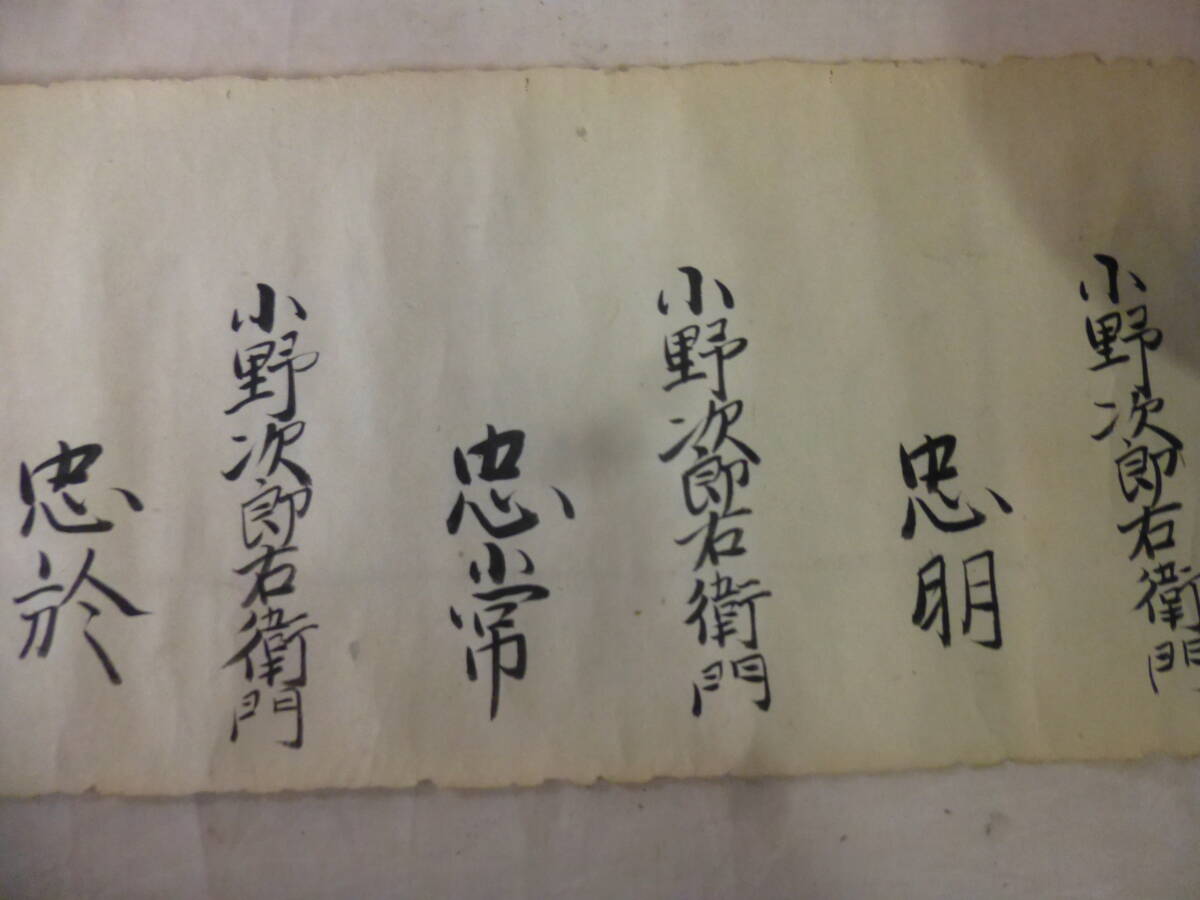 小野次郎右衛門
忠明
小野次郎右衛門
忠常
小野次郎右衛門
忠於